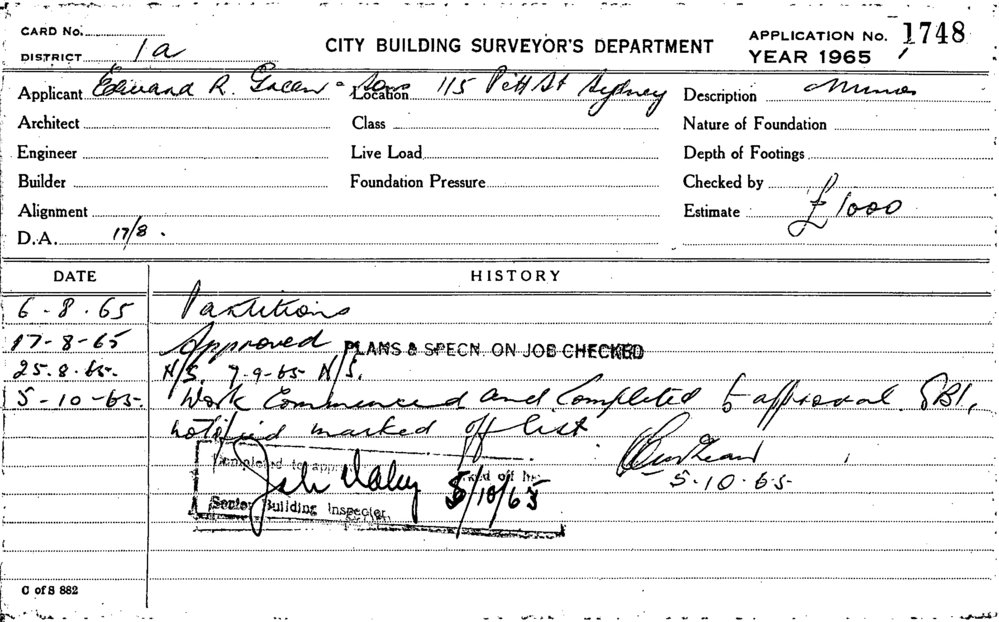 CARD No.
DISTRICT 1a
CITY BUILDING SURVEYOR'S DEPARTMENT
APPLICATION No. 1748
YEAR 1965
Applicant Edward R. Green & Sons Location 115 Pitt St Sydney Description Minor
Architect Class Nature of Foundation
Engineer Live Load Depth of Footings
Builder Foundation Pressure Checked by
Alignment Estimate £1000
D.A. 17/8.
DATE HISTORY
6-8-65 Partitions
17-8-65 Approved PLANS & SPECN. ON JOB CHECKED
25.8.65. N/S. 7-9-65 N/S.
5-10-65. Work Commenced and Completed to approval. SBI,
notified marked off list
Completed to
5-10-65
5/10/65
Senior Building Inspector
C of S 882